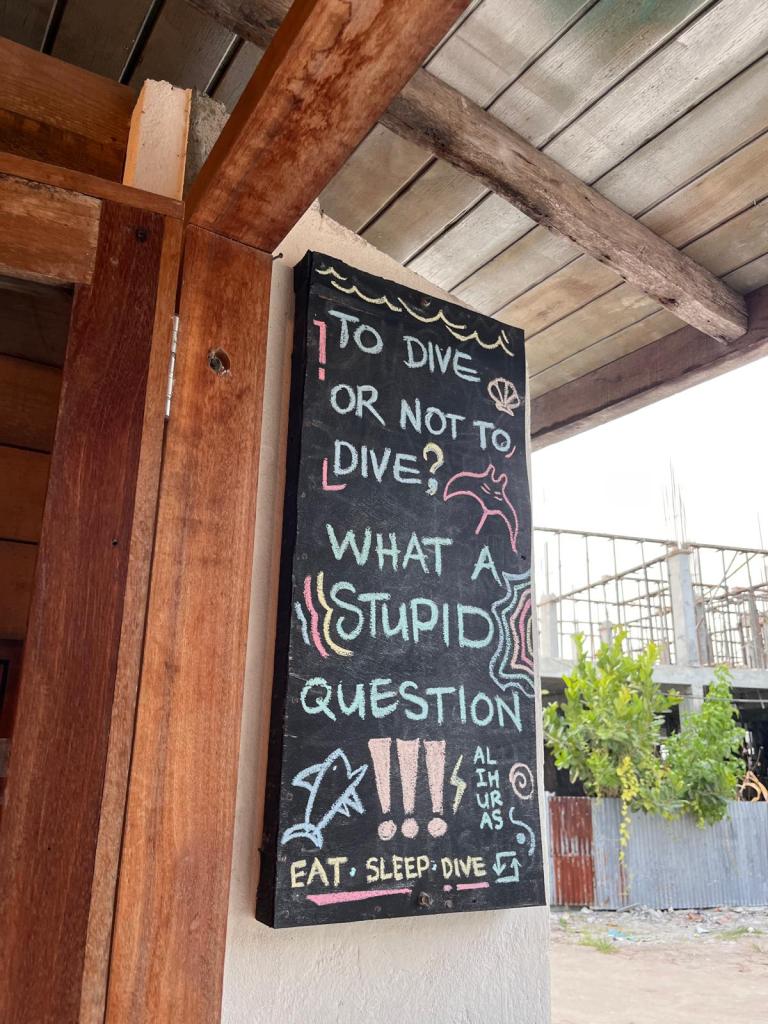 TO DIVE
OR NOT TO
DIVE?
WHAT A
STUPID
QUESTION
!!!
AL
IH
UR
AS
EAT · SLEEP · DIVE